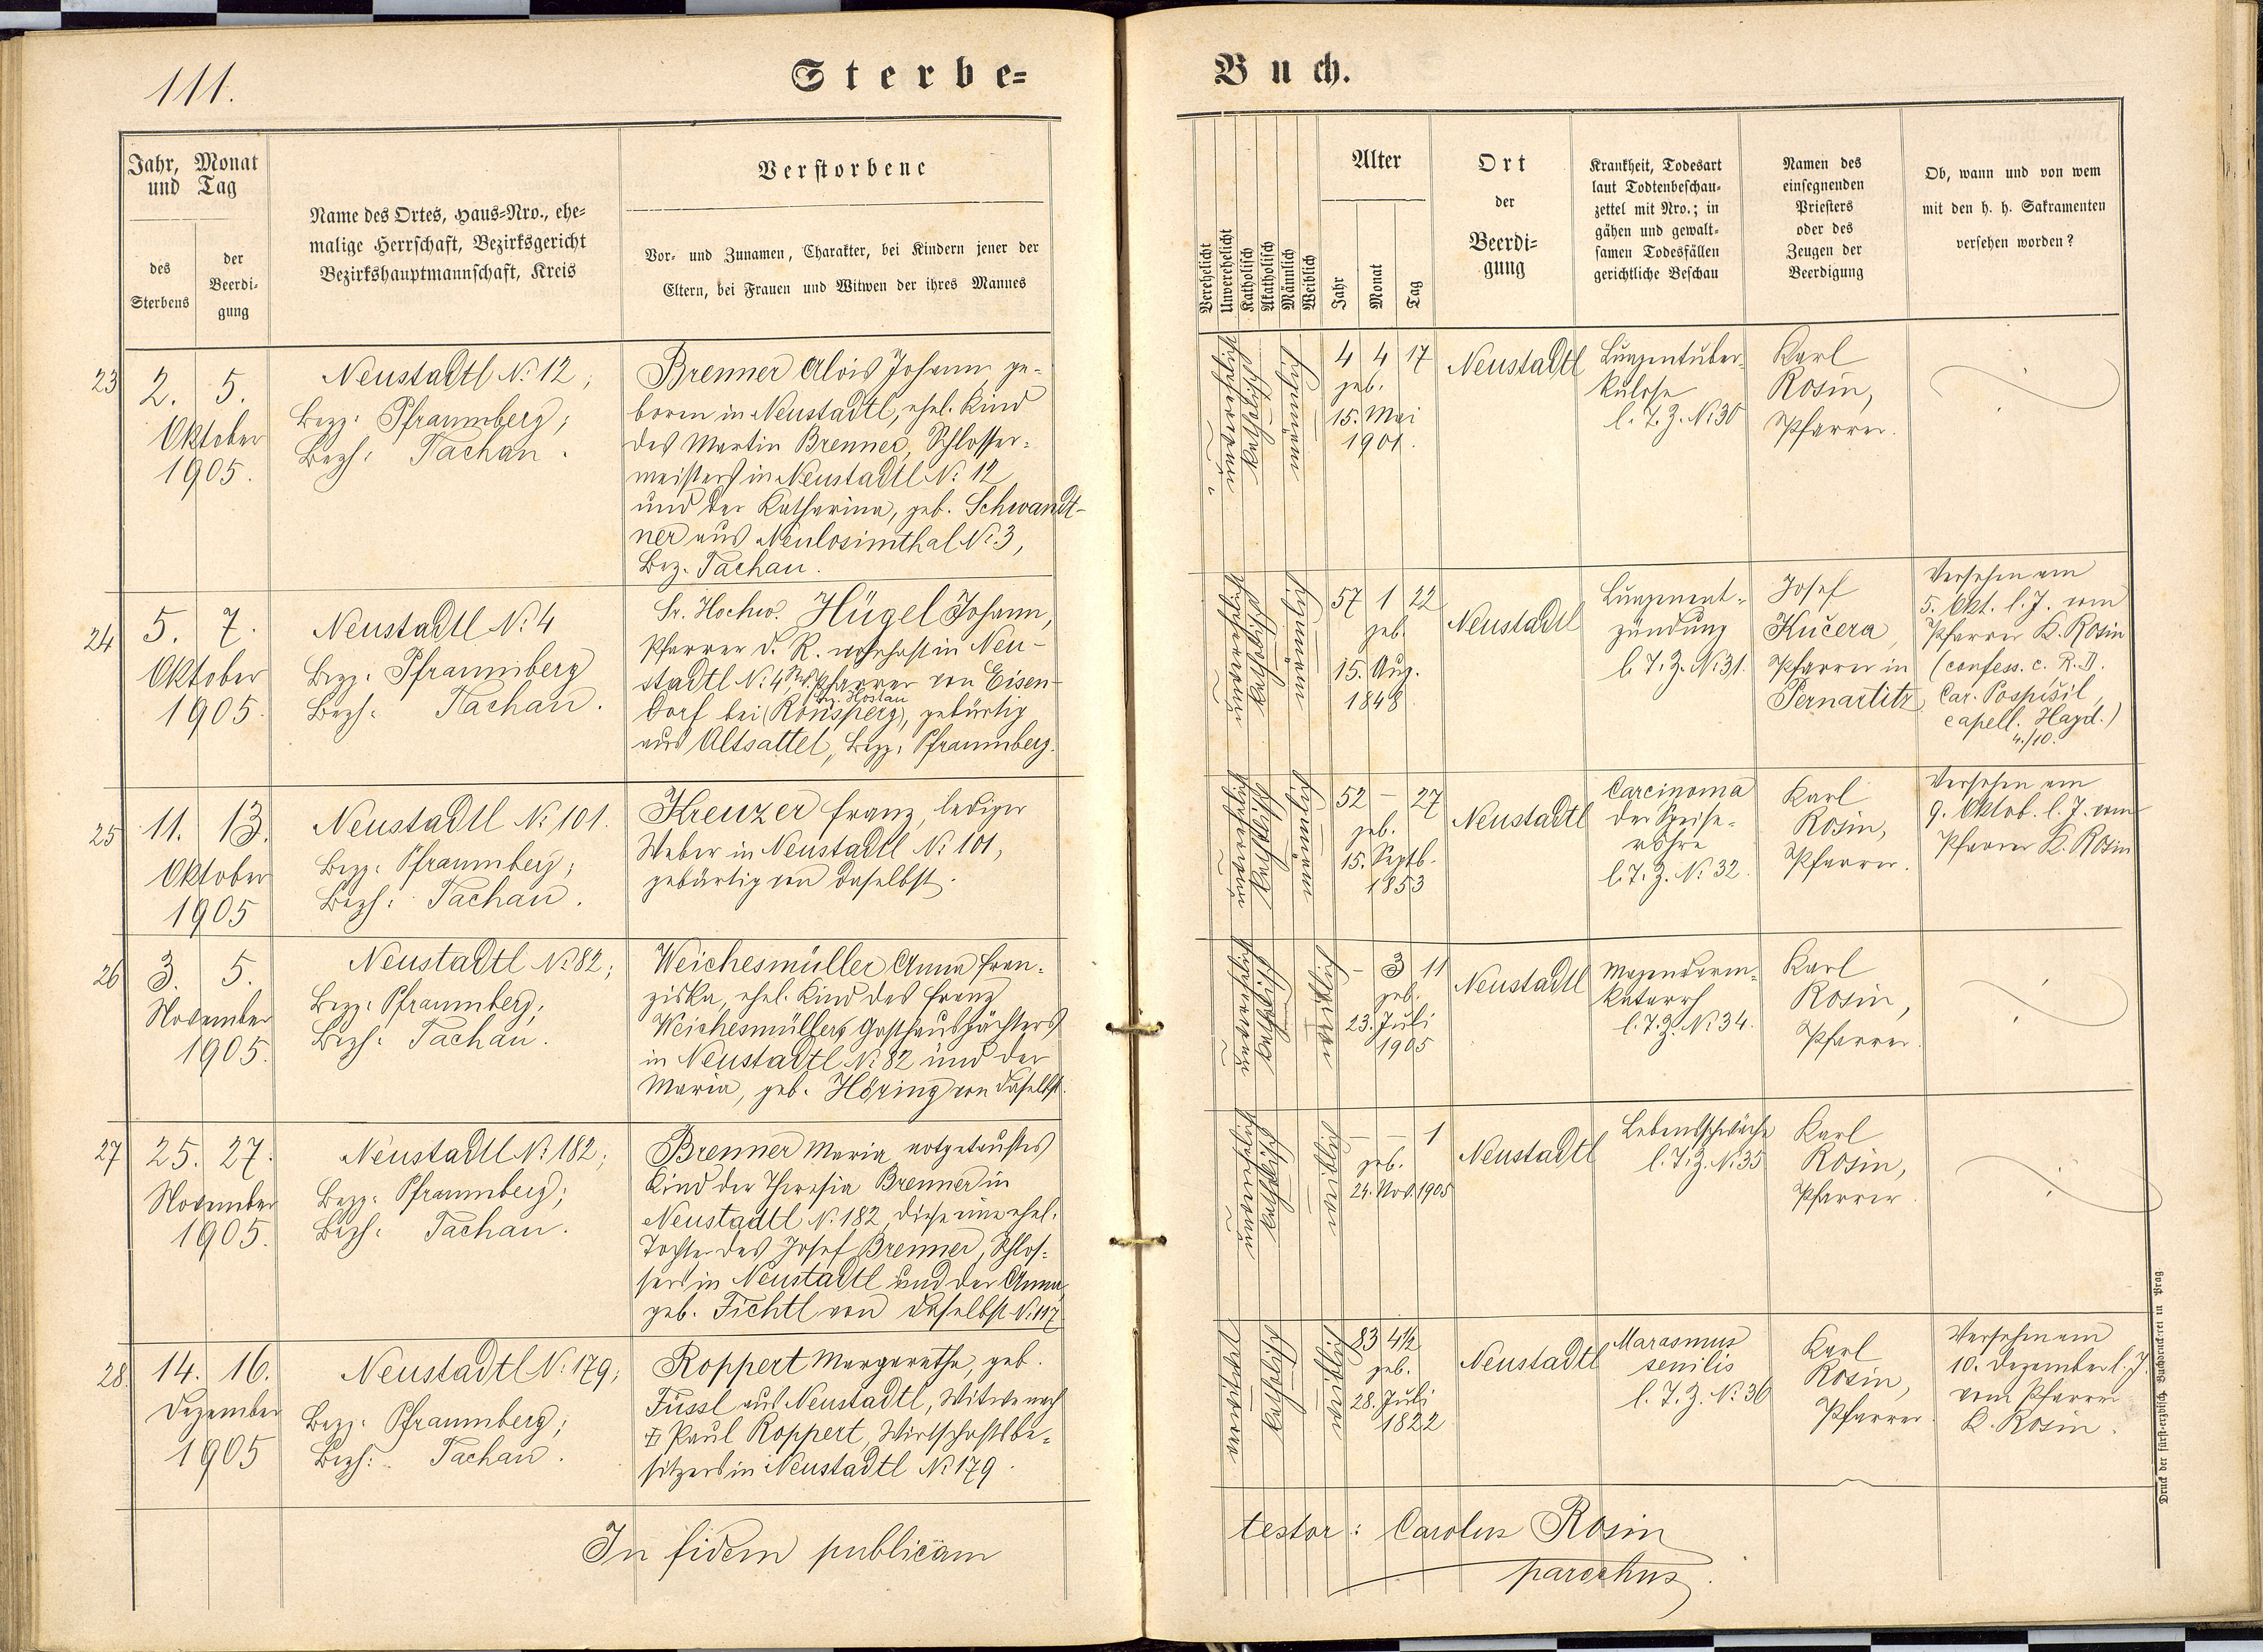 111.
Sterbe=
Buch.
Jahr, Monat
und Tag
des
Sterbens
der
Beerdi=
gung
Name des Ortes, Haus=Nro., ehe=
malige Herrschaft, Bezirksgericht
Bezirkshauptmannschaft, Kreis
Verstorbene
Vor= und Zunamen, Charakter, bei Kindern jener der
Eltern, bei Frauen und Witwen der ihres Mannes
Verehelicht
Unverehelicht
Katholisch
Akatholisch
Männlich
Weiblich
Alter
Jahr
Monat
Tag
Ort
der
Beerdi=
gung
Krankheit, Todesart
laut Todtenbeschau=
zettel mit Nro.; in
gähen und gewalt=
samen Todesfällen
gerichtliche Beschau
Namen des
einsegnenden
Priesters
oder des
Zeugen der
Beerdigung
Ob, wann und von wem
mit den h. h. Sakramenten
versehen worden?
23
2. 5.
Oktober
1905.
Neustadtl No 12;
Bezg. Pfraumberg;
Bezh. Tachau.
Brenner Alois Johann ge-
boren in Neustadtl, ehel. Kind
des Martin Brenner, Schlosser-
meisters in Neustadtl No 12
und der Katharina, geb. Schwandt-
ner aus Neulosimthal No 3,
Bez. Tachau.
unverehelicht
katholisch
männlich
4 4 17
geb.
15. Mai
1901.
Neustadtl
Lungentuber-
kulose
l. T. Z. No 30
Karl
Rosin,
Pfarrer.
24
5. 7.
Oktober
1905.
Neustadtl No 4
Bezg. Pfraumberg
Bezh. Tachau.
Sr. Hochw. Hügel Johann,
Pfarrer d. R. wohnhaft in Neu-
stadtl No 4 Pfarrer von Eisen-
Bez. Hostau
dorf bei (Ronsperg), gebürtig
aus Altsattel, Bezg. Pfraumberg.
unverehelicht
katholisch
männlich
57 1 22
geb.
15. Aug.
1848.
Neustadtl
Lungenent-
zündung
l. T. Z. No 31.
Josef
Kučera,
Pfarrer in
Pernartitz
Versehen am
5. Okt. l. J. vom
Pfarrer K. Rosin
(confess. c. R. D.
Car. Pospíšil,
capell. Hayd.)
4./10.
25
11. 13.
Oktober
1905
Neustadtl No 101.
Bezg. Pfraumberg;
Bezh. Tachau.
Kreuzer Franz, lediger
Weber in Neustadtl No 101,
gebürtig von daselbst.
unverehelicht
katholisch
männlich
52 – 27
geb.
15. Septb.
1853
Neustadtl
Carcinoma
der Speise-
röhre
l. T. Z. No 32.
Karl
Rosin,
Pfarrer.
Versehen am
9. Oktob. l. J. vom
Pfarrer K. Rosin
26
3. 5.
November
1905.
Neustadtl No 82;
Bezg. Pfraumberg;
Bezh. Tachau.
Weichesmüller Anna Fran-
ziska, ehel. Kind des Franz
Weichesmüllers Gasthauspächters
in Neustadtl No 82 und der
Maria, geb. Höring von daselbst.
unverehelicht
katholisch
weiblich
– 3 11
geb.
23. Juli
1905
Neustadtl
Magendarm-
katarrh
l. T. Z. No 34.
Karl
Rosin,
Pfarrer.
27
25. 27.
November
1905.
Neustadtl No 182;
Bezg. Pfraumberg;
Bezh. Tachau.
Brenner Maria notgetauftes
Kind der Theresia Brenner in
Neustadtl No 182, diese eine ehel.
Tochter des Josef Brenner, Schlos-
sers in Neustadtl und der Anna
geb. Fichtl von daselbst No 117
unverehelicht
katholisch
weiblich
– – 1
geb.
24. Nov. 1905
Neustadtl
Lebensschwäche
l. T. Z. No 35
Karl
Rosin,
Pfarrer.
28.
14. 16.
Dezember
1905
Neustadtl No 179;
Bezg. Pfraumberg;
Bezh. Tachau.
Roppert Margaretha, geb.
Füssl aus Neustadtl, Witwe nach
Paul Roppert, Wirtschaftsbe-
sitzers in Neustadtl No 179.
verwitwet
katholisch
weiblich
83 4½
geb.
28. Juli
1822
Neustadtl
Marasmus
senilis
l. T. Z. No 36
Karl
Rosin,
Pfarrer
Versehen am
10. Dezember l. J.
vom Pfarrer
K. Rosin.
In fidem publicam
testor: Carolus Rosin
parochus.
Druck der fürst=erzbisch. Buchdruckerei in Prag